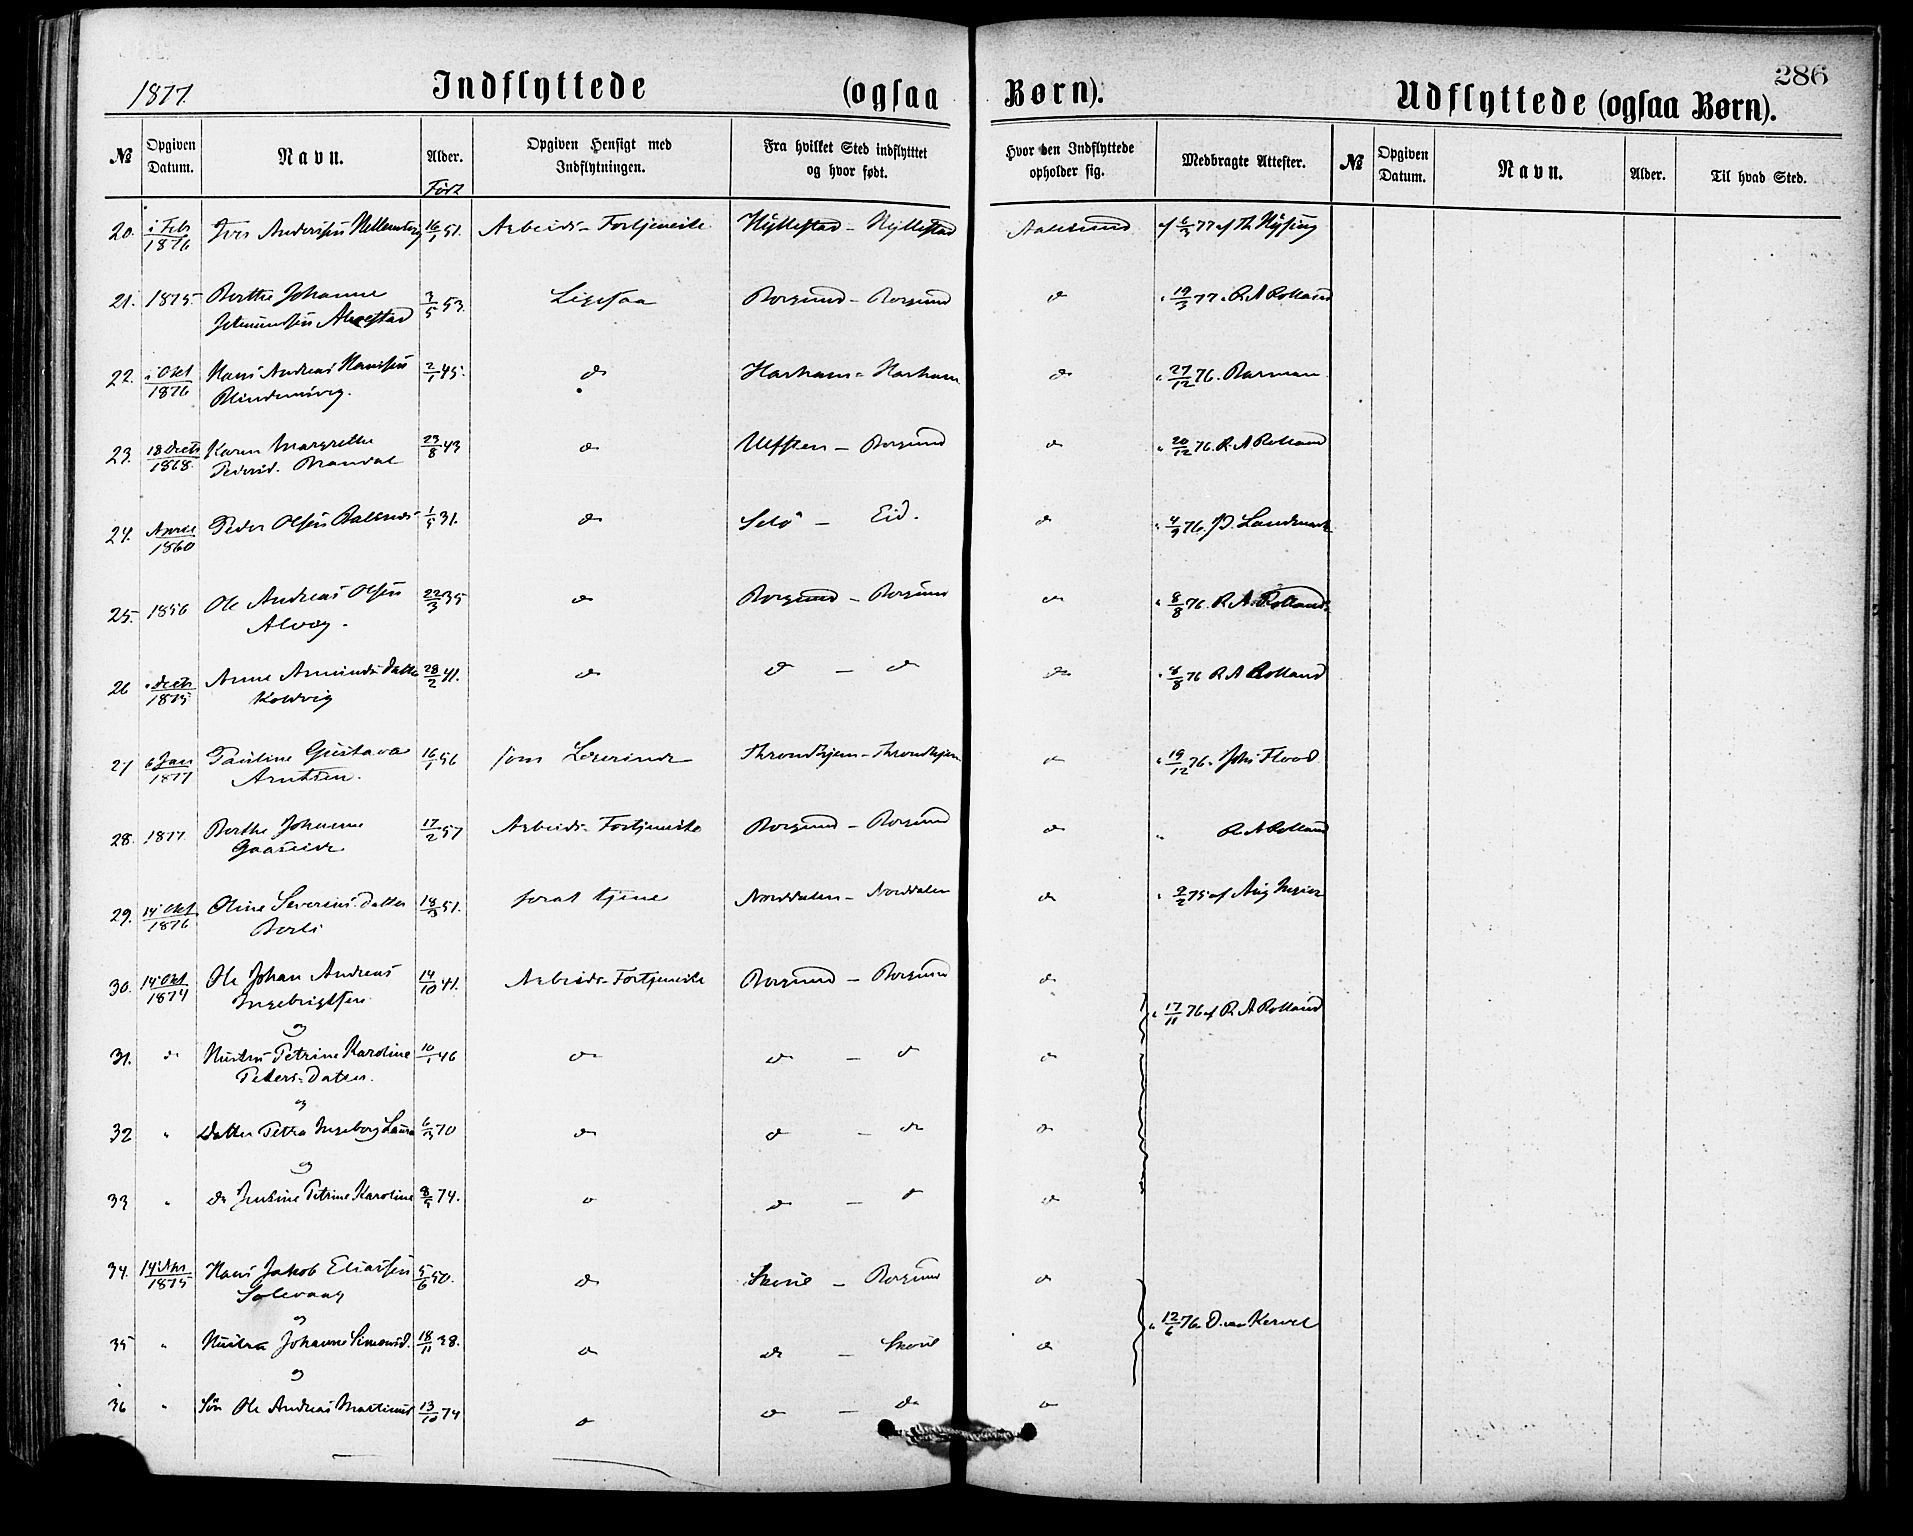 1877.
Indflyttede (ogsaa Børn).
Udflyttede (ogsaa Børn).
286
№ Opgiven Datum. Navn. Alder. Opgiven Hensigt med Indflytningen. Fra hvilket Sted indflytttet og hvor født. Hvor den Indflyttede opholder sig. Medbragte Attester. № Opgiven Datum. Navn. Alder. Til hvad Sted.
Født
20. i Feb 1876 Iver Andersen 16/1 51. Arbeids-Fortjeneste Hyllestad - Hyllestad Aalesund af 6/3 77 af Th
21. 1875. Berthe Johanne 3/5 53. Ligesaa Borgund - Borgund do " 19/3 77. R A Rolland
22. i Okt 1876 Hans Andreas Hansen 2/1 45. do Harham - Harham do " 27/12 76. Barman
Blindemsvig.
23. 18 1868. Karen Margrethe 23/8 43 do Ulfsten - Borgund do " 20/12 76. R A Rolland
Pedersd. Brandal
24. April 1860 Peder Olsen 1/5 31. do Selö - Eid. do " 4/9 76. Landmark
25. 1856 Ole Andreas Olsen 22/3 35 do Borgund - Borgund do " 8/8 76. R A Rolland
26 1875 Anne Datter 28/2 41. do do - do do " 8/8 76 R A Rolland
Kolvig
27 6 Jan 1877 Pauline Gustava 16/1 56 som Lærerinde Throndhjem - Throndhjem do " 19/12 76. Johs Flood
Arntsen.
28. 1877. Berthe Johanne 17/2 57 Arbeids-Fortjeneste Borgund - Borgund do " R A Rolland
Gaaseide
29. 14 Okt 1876 Oline Severins Datter 51. forat tjene Norddalen - Norddalen do " 2/2 75 af Aug
30. 14 Okt 1874 Ole Johan Andreas 14/10 41. Arbeids-Fortjeneste Borgund - Borgund do
Ingebrigtsen " 17/11 76 af R A Rolland
og
31. do Hustru Petrine Karoline 10/1 46 do do - do do
Peders-Datter.
og
32 " Datter Petra Ingeborg Laura 70 do do - do do
og
33 " do Petrine Karoline 74. do do - do do
34. 1875 Hans Jakob Eliassen 5/6 50. do - Borgund do
Solevaag
og " 12/6 76. D. van Kervel
35 " Hustru Johanne 18/11 38. do do - do
og
36 " Søn Ole Andreas Martinus 13/10 74 do do - do do